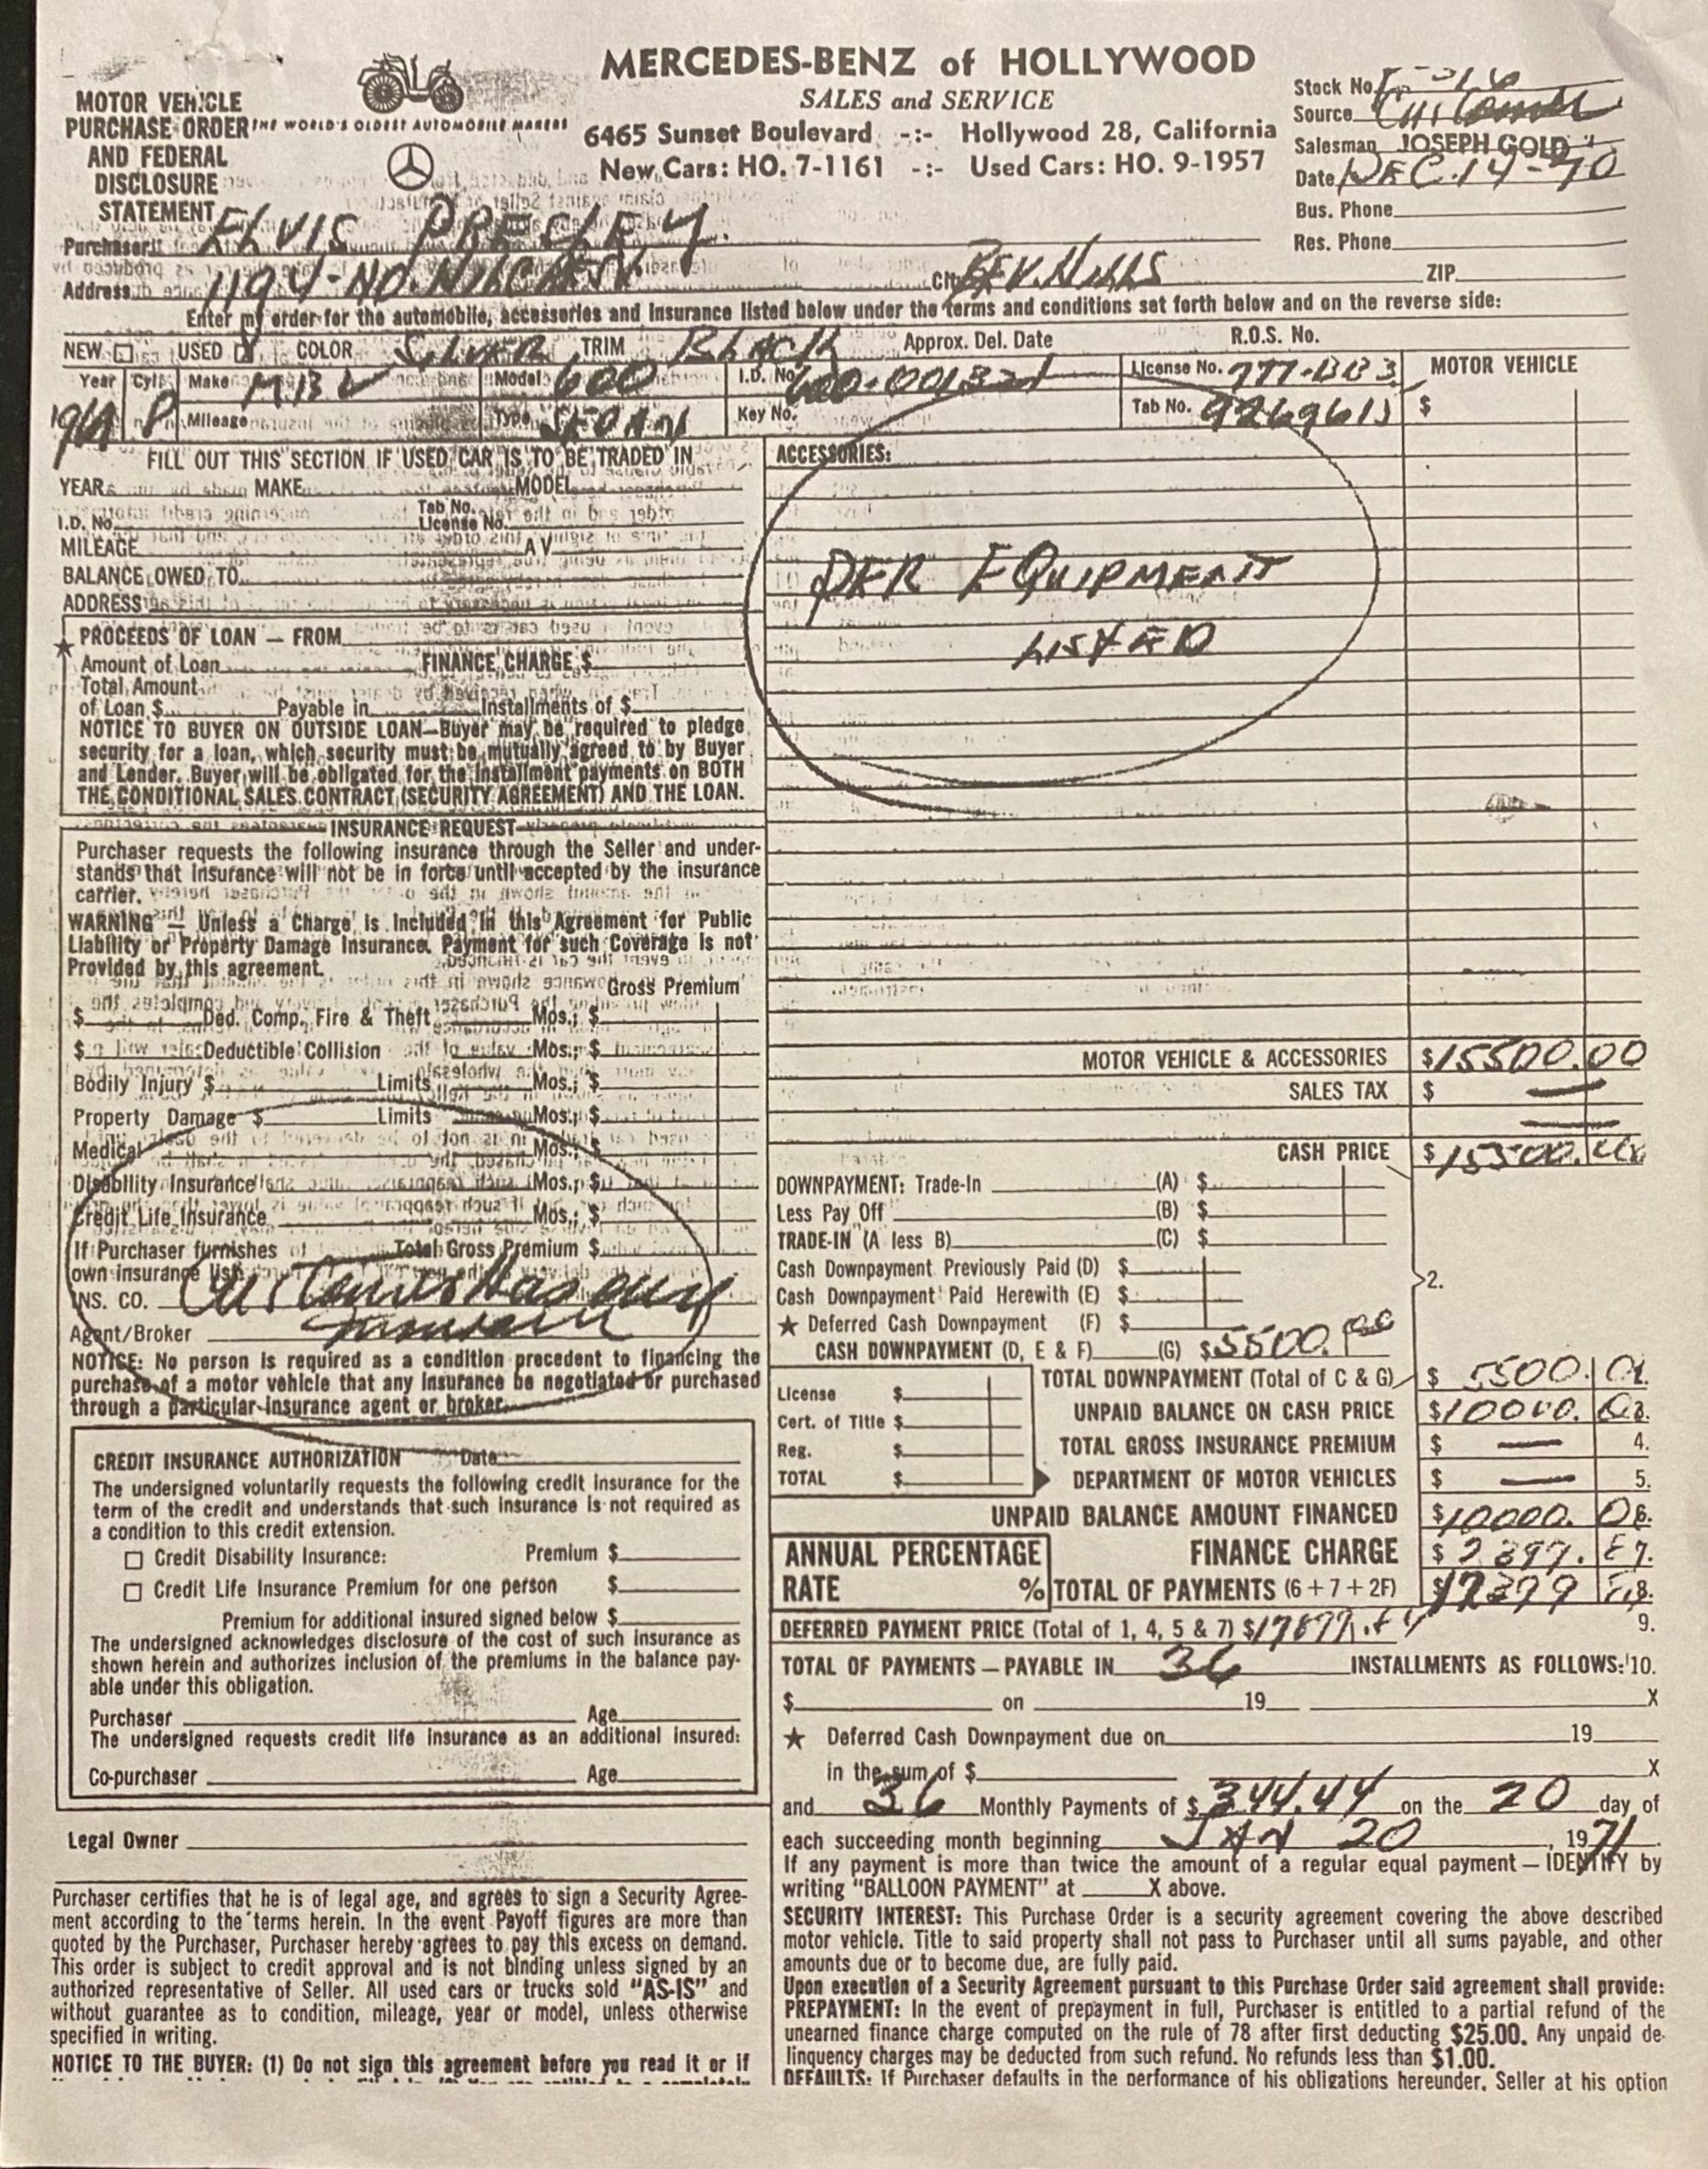 MERCEDES-BENZ of HOLLYWOOD
SALES and SERVICE
6465 Sunset Boulevard -:- Hollywood 28, California
New Cars: HO. 7-1161 -:- Used Cars: HO. 9-1957
MOTOR VEHICLE
PURCHASE ORDER
AND FEDERAL
DISCLOSURE
STATEMENT
THE WORLD'S OLDEST AUTOMOBILE MAKERS
Stock No.
Source Customer
Salesman JOSEPH GOLD
Date DEC. 14-70
Bus. Phone
Res. Phone
Purchaser ELVIS PRESLEY.
Address 1194-NO. HILLCREST City BEV. HILLS ZIP
Enter my order for the automobile, accessories and insurance listed below under the terms and conditions set forth below and on the reverse side:
NEW USED COLOR SILVER TRIM BLACK Approx. Del. Date R.O.S. No.
Year Cyl. 8 Make MBZ Model 600 I.D. No. License No. 777-BB3 MOTOR VEHICLE
Mileage Type SEDAN Key No. Tab No. $
FILL OUT THIS SECTION IF USED CAR IS TO BE TRADED IN
YEAR MAKE MODEL
I.D. No. Tab No. License No.
MILEAGE AV
BALANCE OWED TO
ADDRESS
★ PROCEEDS OF LOAN — FROM
Amount of Loan FINANCE CHARGE $
Total Amount
of Loan $ Payable in Installments of $
NOTICE TO BUYER ON OUTSIDE LOAN—Buyer may be required to pledge
security for a loan, which security must be mutually agreed to by Buyer
and Lender. Buyer will be obligated for the installment payments on BOTH
THE CONDITIONAL SALES CONTRACT (SECURITY AGREEMENT) AND THE LOAN.
INSURANCE REQUEST
Purchaser requests the following insurance through the Seller and under-
stands that insurance will not be in force until accepted by the insurance
carrier.
WARNING — Unless a Charge is Included in this Agreement for Public
Liability or Property Damage Insurance, Payment for such Coverage is not
Provided by this agreement.
Gross Premium
$ Ded. Comp., Fire & Theft Mos.; $
$ Deductible Collision Mos.; $
Bodily Injury $ Limits Mos.; $
Property Damage $ Limits Mos.; $
Medical Mos.; $
Disability Insurance Mos.; $
Credit Life Insurance Mos.; $
If Purchaser furnishes Total Gross Premium $
own insurance list:
INS. CO. Customer Has own
Agent/Broker Insurance
NOTICE: No person is required as a condition precedent to financing the
purchase of a motor vehicle that any insurance be negotiated or purchased
through a particular insurance agent or broker.
CREDIT INSURANCE AUTHORIZATION Date
The undersigned voluntarily requests the following credit insurance for the
term of the credit and understands that such insurance is not required as
a condition to this credit extension.
Credit Disability Insurance: Premium $
Credit Life Insurance Premium for one person $
Premium for additional insured signed below $
The undersigned acknowledges disclosure of the cost of such insurance as
shown herein and authorizes inclusion of the premiums in the balance pay-
able under this obligation.
Purchaser Age
The undersigned requests credit life insurance as an additional insured:
Co-purchaser Age
Legal Owner
Purchaser certifies that he is of legal age, and agrees to sign a Security Agree-
ment according to the terms herein. In the event Payoff figures are more than
quoted by the Purchaser, Purchaser hereby agrees to pay this excess on demand.
This order is subject to credit approval and is not binding unless signed by an
authorized representative of Seller. All used cars or trucks sold "AS-IS" and
without guarantee as to condition, mileage, year or model, unless otherwise
specified in writing.
NOTICE TO THE BUYER: (1) Do not sign this agreement before you read it or if
ACCESSORIES:
PER EQUIPMENT
LISTED
MOTOR VEHICLE & ACCESSORIES $15500.00
SALES TAX $ —
CASH PRICE $15500.00
DOWNPAYMENT: Trade-In (A) $
Less Pay Off (B) $
TRADE-IN (A less B) (C) $
Cash Downpayment Previously Paid (D) $
2.
Cash Downpayment Paid Herewith (E) $
★ Deferred Cash Downpayment (F) $
CASH DOWNPAYMENT (D, E & F) (G) $5500.00
TOTAL DOWNPAYMENT (Total of C & G) $ 5500.
License $
UNPAID BALANCE ON CASH PRICE $10000. 3.
Cert. of Title $
TOTAL GROSS INSURANCE PREMIUM $ — 4.
Reg. $
DEPARTMENT OF MOTOR VEHICLES $ — 5.
TOTAL $
UNPAID BALANCE AMOUNT FINANCED $10000. 6.
ANNUAL PERCENTAGE
RATE %
FINANCE CHARGE $ 7.
TOTAL OF PAYMENTS (6 + 7 + 2F) $ 8.
DEFERRED PAYMENT PRICE (Total of 1, 4, 5 & 7) $ 9.
TOTAL OF PAYMENTS — PAYABLE IN 36 INSTALLMENTS AS FOLLOWS: 10.
$ on 19 X
★ Deferred Cash Downpayment due on 19
in the sum of $ X
and 36 Monthly Payments of $ 344.44 on the 20 day of
each succeeding month beginning JAN 20, 1971.
If any payment is more than twice the amount of a regular equal payment — IDENTIFY by
writing "BALLOON PAYMENT" at X above.
SECURITY INTEREST: This Purchase Order is a security agreement covering the above described
motor vehicle. Title to said property shall not pass to Purchaser until all sums payable, and other
amounts due or to become due, are fully paid.
Upon execution of a Security Agreement pursuant to this Purchase Order said agreement shall provide:
PREPAYMENT: In the event of prepayment in full, Purchaser is entitled to a partial refund of the
unearned finance charge computed on the rule of 78 after first deducting $25.00. Any unpaid de-
linquency charges may be deducted from such refund. No refunds less than $1.00.
DEFAULTS: If Purchaser defaults in the performance of his obligations hereunder, Seller at his option